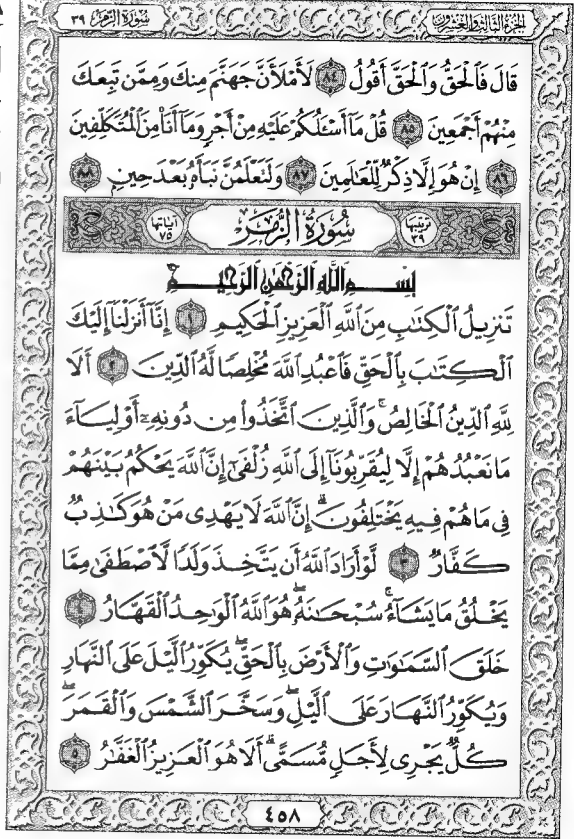 سُورَةُ الزُّمَرِ ٣٩
الجُزْءُ الثَّالِثُ وَالعِشْرُونَ
قَالَ فَٱلْحَقُّ وَٱلْحَقَّ أَقُولُ ﴿٨٤﴾ لَأَمْلَأَنَّ جَهَنَّمَ مِنكَ وَمِمَّن تَبِعَكَ
مِنْهُمْ أَجْمَعِينَ ﴿٨٥﴾ قُلْ مَآ أَسْـَٔلُكُمْ عَلَيْهِ مِنْ أَجْرٍ وَمَآ أَنَا۠ مِنَ ٱلْمُتَكَلِّفِينَ
﴿٨٦﴾ إِنْ هُوَ إِلَّا ذِكْرٌ لِّلْعَـٰلَمِينَ ﴿٨٧﴾ وَلَتَعْلَمُنَّ نَبَأَهُۥ بَعْدَ حِينٍ ﴿٨٨﴾
ترتيبها ٣٩ سُورَةُ الزُّمَرِ آياتها ٧٥
بِسْمِ ٱللَّهِ ٱلرَّحْمَـٰنِ ٱلرَّحِيمِ
تَنزِيلُ ٱلْكِتَـٰبِ مِنَ ٱللَّهِ ٱلْعَزِيزِ ٱلْحَكِيمِ ﴿١﴾ إِنَّآ أَنزَلْنَآ إِلَيْكَ
ٱلْكِتَـٰبَ بِٱلْحَقِّ فَٱعْبُدِ ٱللَّهَ مُخْلِصًا لَّهُ ٱلدِّينَ ﴿٢﴾ أَلَا
لِلَّهِ ٱلدِّينُ ٱلْخَالِصُ ۚ وَٱلَّذِينَ ٱتَّخَذُوا۟ مِن دُونِهِۦٓ أَوْلِيَآءَ
مَا نَعْبُدُهُمْ إِلَّا لِيُقَرِّبُونَآ إِلَى ٱللَّهِ زُلْفَىٰٓ إِنَّ ٱللَّهَ يَحْكُمُ بَيْنَهُمْ
فِى مَا هُمْ فِيهِ يَخْتَلِفُونَ ۗ إِنَّ ٱللَّهَ لَا يَهْدِى مَنْ هُوَ كَـٰذِبٌ
كَفَّارٌ ﴿٣﴾ لَّوْ أَرَادَ ٱللَّهُ أَن يَتَّخِذَ وَلَدًا لَّٱصْطَفَىٰ مِمَّا
يَخْلُقُ مَا يَشَآءُ ۚ سُبْحَـٰنَهُۥ ۖ هُوَ ٱللَّهُ ٱلْوَٰحِدُ ٱلْقَهَّارُ ﴿٤﴾
خَلَقَ ٱلسَّمَـٰوَٰتِ وَٱلْأَرْضَ بِٱلْحَقِّ ۖ يُكَوِّرُ ٱلَّيْلَ عَلَى ٱلنَّهَارِ
وَيُكَوِّرُ ٱلنَّهَارَ عَلَى ٱلَّيْلِ ۖ وَسَخَّرَ ٱلشَّمْسَ وَٱلْقَمَرَ ۖ
كُلٌّ يَجْرِى لِأَجَلٍ مُّسَمًّى ۗ أَلَا هُوَ ٱلْعَزِيزُ ٱلْغَفَّـٰرُ ﴿٥﴾
٤٥٨